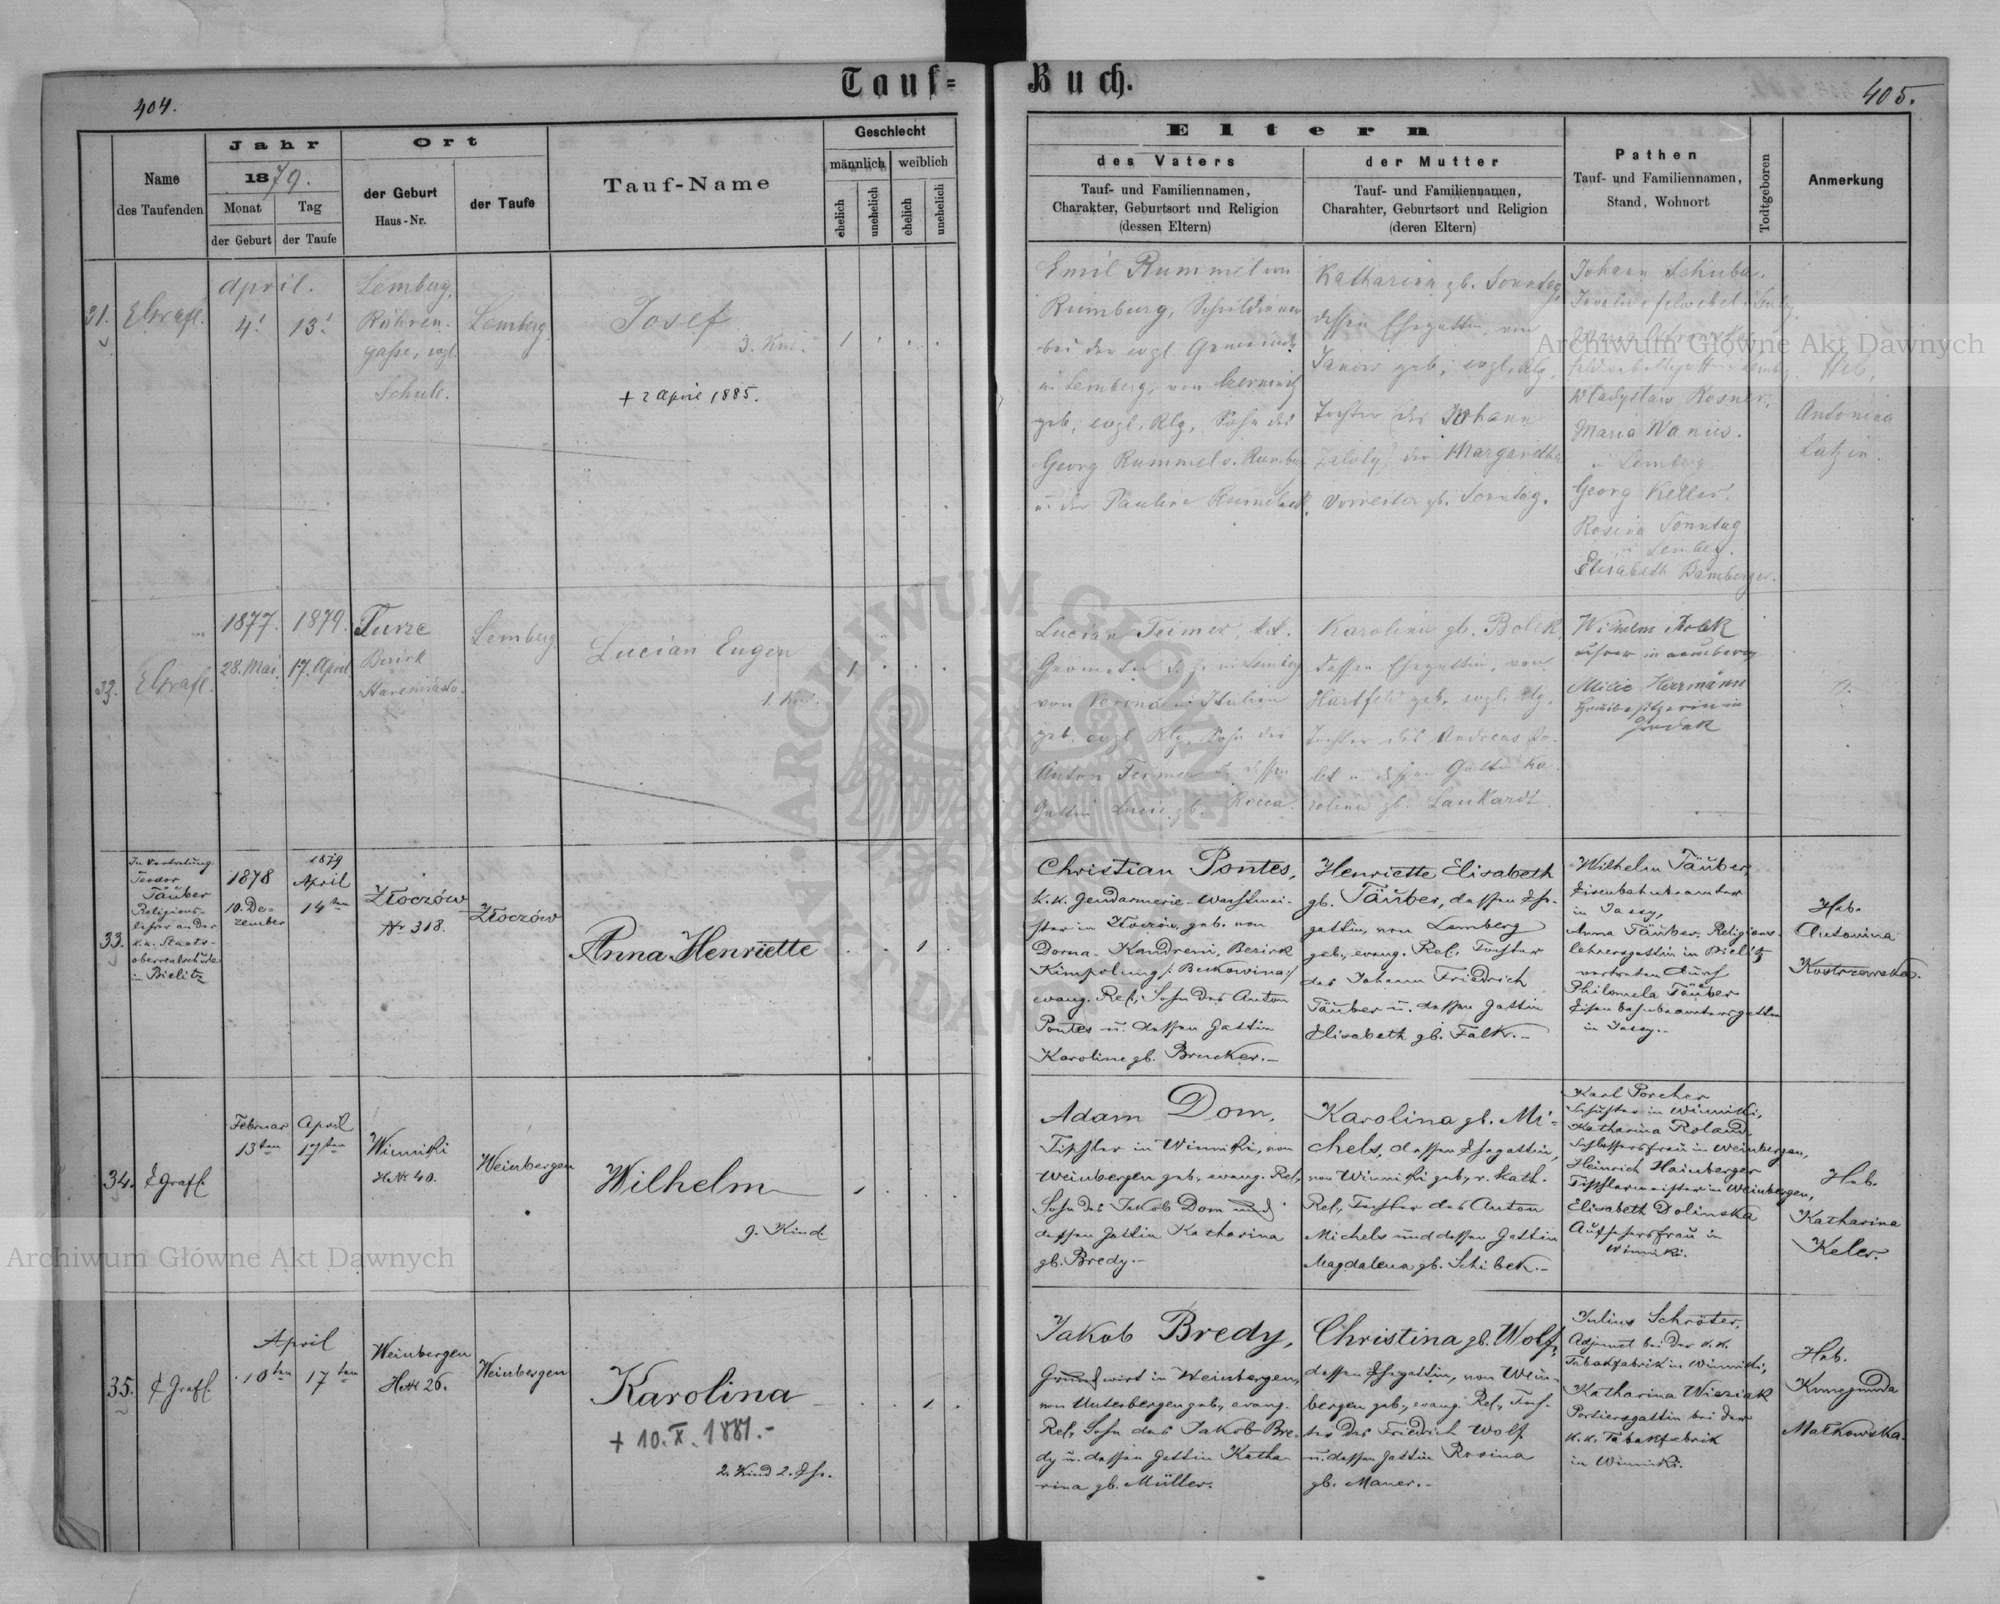 Tauf-Buch.
404.
405.
Name
des Taufenden
Jahr
1879.
Monat
der Geburt
Tag
der Taufe
Ort
der Geburt
Haus-Nr.
der Taufe
Tauf-Name
Geschlecht
männlich
weiblich
ehelich
unehelich
ehelich
unehelich
Eltern
des Vaters
Tauf- und Familiennamen,
Charakter, Geburtsort und Religion
(dessen Eltern)
der Mutter
Tauf- und Familiennamen,
Charahter, Geburtsort und Religion
(deren Eltern)
Pathen
Tauf- und Familiennamen,
Stand, Wohnort
Todtgeboren
Anmerkung
31.
EGrafl.
April.
4!
13!
Lemberg,
Röhren-
gasse, evgl.
Schule.
Lemberg
Josef
3. Kind.
+ 2 April 1885.
Emil Rummel von
Rumburg, Schuldiener
bei der evgl. Gemeinde
in Lemberg, von
geb, evgl. Rlg, Sohn des
Georg Rummel v. Rumburg
u. der Pauline
Katharina gb. Sonntag,
dessen Ehegattin, von
Janow geb, evgl. Rlg,
Tochter des Johann
der Margaretha
gb. Sonntag.
Johann Schuba,
Wladyslaw Rosner,
Maria Waniw.
in Lemberg
Georg Keller,
Rosina Sonntag
in Lemberg.
Elisabeth Bamberger.
Heb.
Antonia
32.
EGrafl.
1877.
28. Mai.
1879.
17. April
Turze
Bezirk
Staremiasto.
Lemberg
Lucian Eugen
1. Kind.
Lucian Teimer, k.k.
Geometer in Lemberg
von Verona in Italien
geb. evgl. Rlg, Sohn des
Anton Teimer u. dessen
Gattin Lucie gb. Rocca.
Karolina gb. Bolek,
dessen Ehegattin, von
Hartfeld geb, evgl. Rlg,
Tochter des Andreas Bo-
lek u. dessen Gattin Ka-
rolina gb. Lankardt.
Wilhelm Bolek
Lehrer in Lemberg
Milie Herrmann
Hausbesitzerin in
Grodek
33.
In Vertretung
Teodor
Täuber
Religions-
lehrer an der
k.k. Staats-
oberrealschule
in Bielitz
1878
10. De-
zember
1879
April
14ten
Złoczów
Nr 318.
Złoczów
Anna Henriette
Christian Pontes,
k.k. Gendarmerie-Wachtmei-
ster in Złoczów, geb. von
Dorna-Kandreni, Bezirk
Kimpolung /: Buckowina :/
evang. Rel., Sohn des Anton
Pontes u. dessen Gattin
Karoline gb. Brucker.-
Henriette Elisabeth
gb. Täuber, dessen Ehe-
gattin, von Lemberg
geb., evang. Rel., Tochter
des Johann Friedrich
Täuber u. dessen Gattin
Elisabeth gb. Falk.-
Wilhelm Täuber,
Eisenbahnbeamter
in Jassy,
Anna Täuber, Religions-
lehrersgattin in Bielitz
vertreten durch
Philomela Täuber
Eisenbahnbeamtersgattin
in Jassy.-
Heb.
Antonina
Kostrzewska.
34.
E Grafl.
Februar
13ten
April
17ten
Winniki
HNr 40.
Weinbergen
Wilhelm
9. Kind.
Adam Dom,
Tischler in Winniki, von
Weinbergen geb., evang. Rel.,
Sohn des Jakob Dom und
dessen Gattin Katharina
gb. Bredy.-
Karolina gb. Mi-
chels, dessen Ehegattin,
von Winniki geb., r. kath.
Rel., Tochter des Anton
Michels und dessen Gattin
Magdalena gb. Schibek.-
Karl Porcher
Schuster in Winniki,
Katharina Roland
Schlossersfrau in Weinbergen,
Heinrich Hainberger
Tischlermeister in Weinbergen,
Elisabeth Dolinska
Aufsehersfrau in
Winniki.
Heb.
Katharina
Keler.
35.
E Grafl.
April
10ten
17ten
Weinbergen
HNr 26.
Weinbergen
Karolina
+ 10. X. 1881.-
2. Kind 2. Ehe.
Jakob Bredy,
Grundwirt in Weinbergen,
von Unterbergen geb., evang.
Rel., Sohn des Jakob Bre-
dy u. dessen Gattin Katha-
rina gb. Müller.
Christina gb. Wolf,
dessen Ehegattin, von Wein-
bergen geb., evang. Rel., Toch-
ter des Friedrich Wolf
u. dessen Gattin Rosina
gb. Maner.-
Julius Schröter,
Adjunct bei der k.k.
Tabakfabrik in Winniki,
Katharina Wieziak
Portiersgattin bei der
k.k. Tabakfabrik
in Winniki.
Heb.
Kunegunda
Małkowska.
Archiwum Główne Akt Dawnych
Archiwum Główne Akt Dawnych
ARCHIWUM GŁÓWNE AKT DAWNYCH